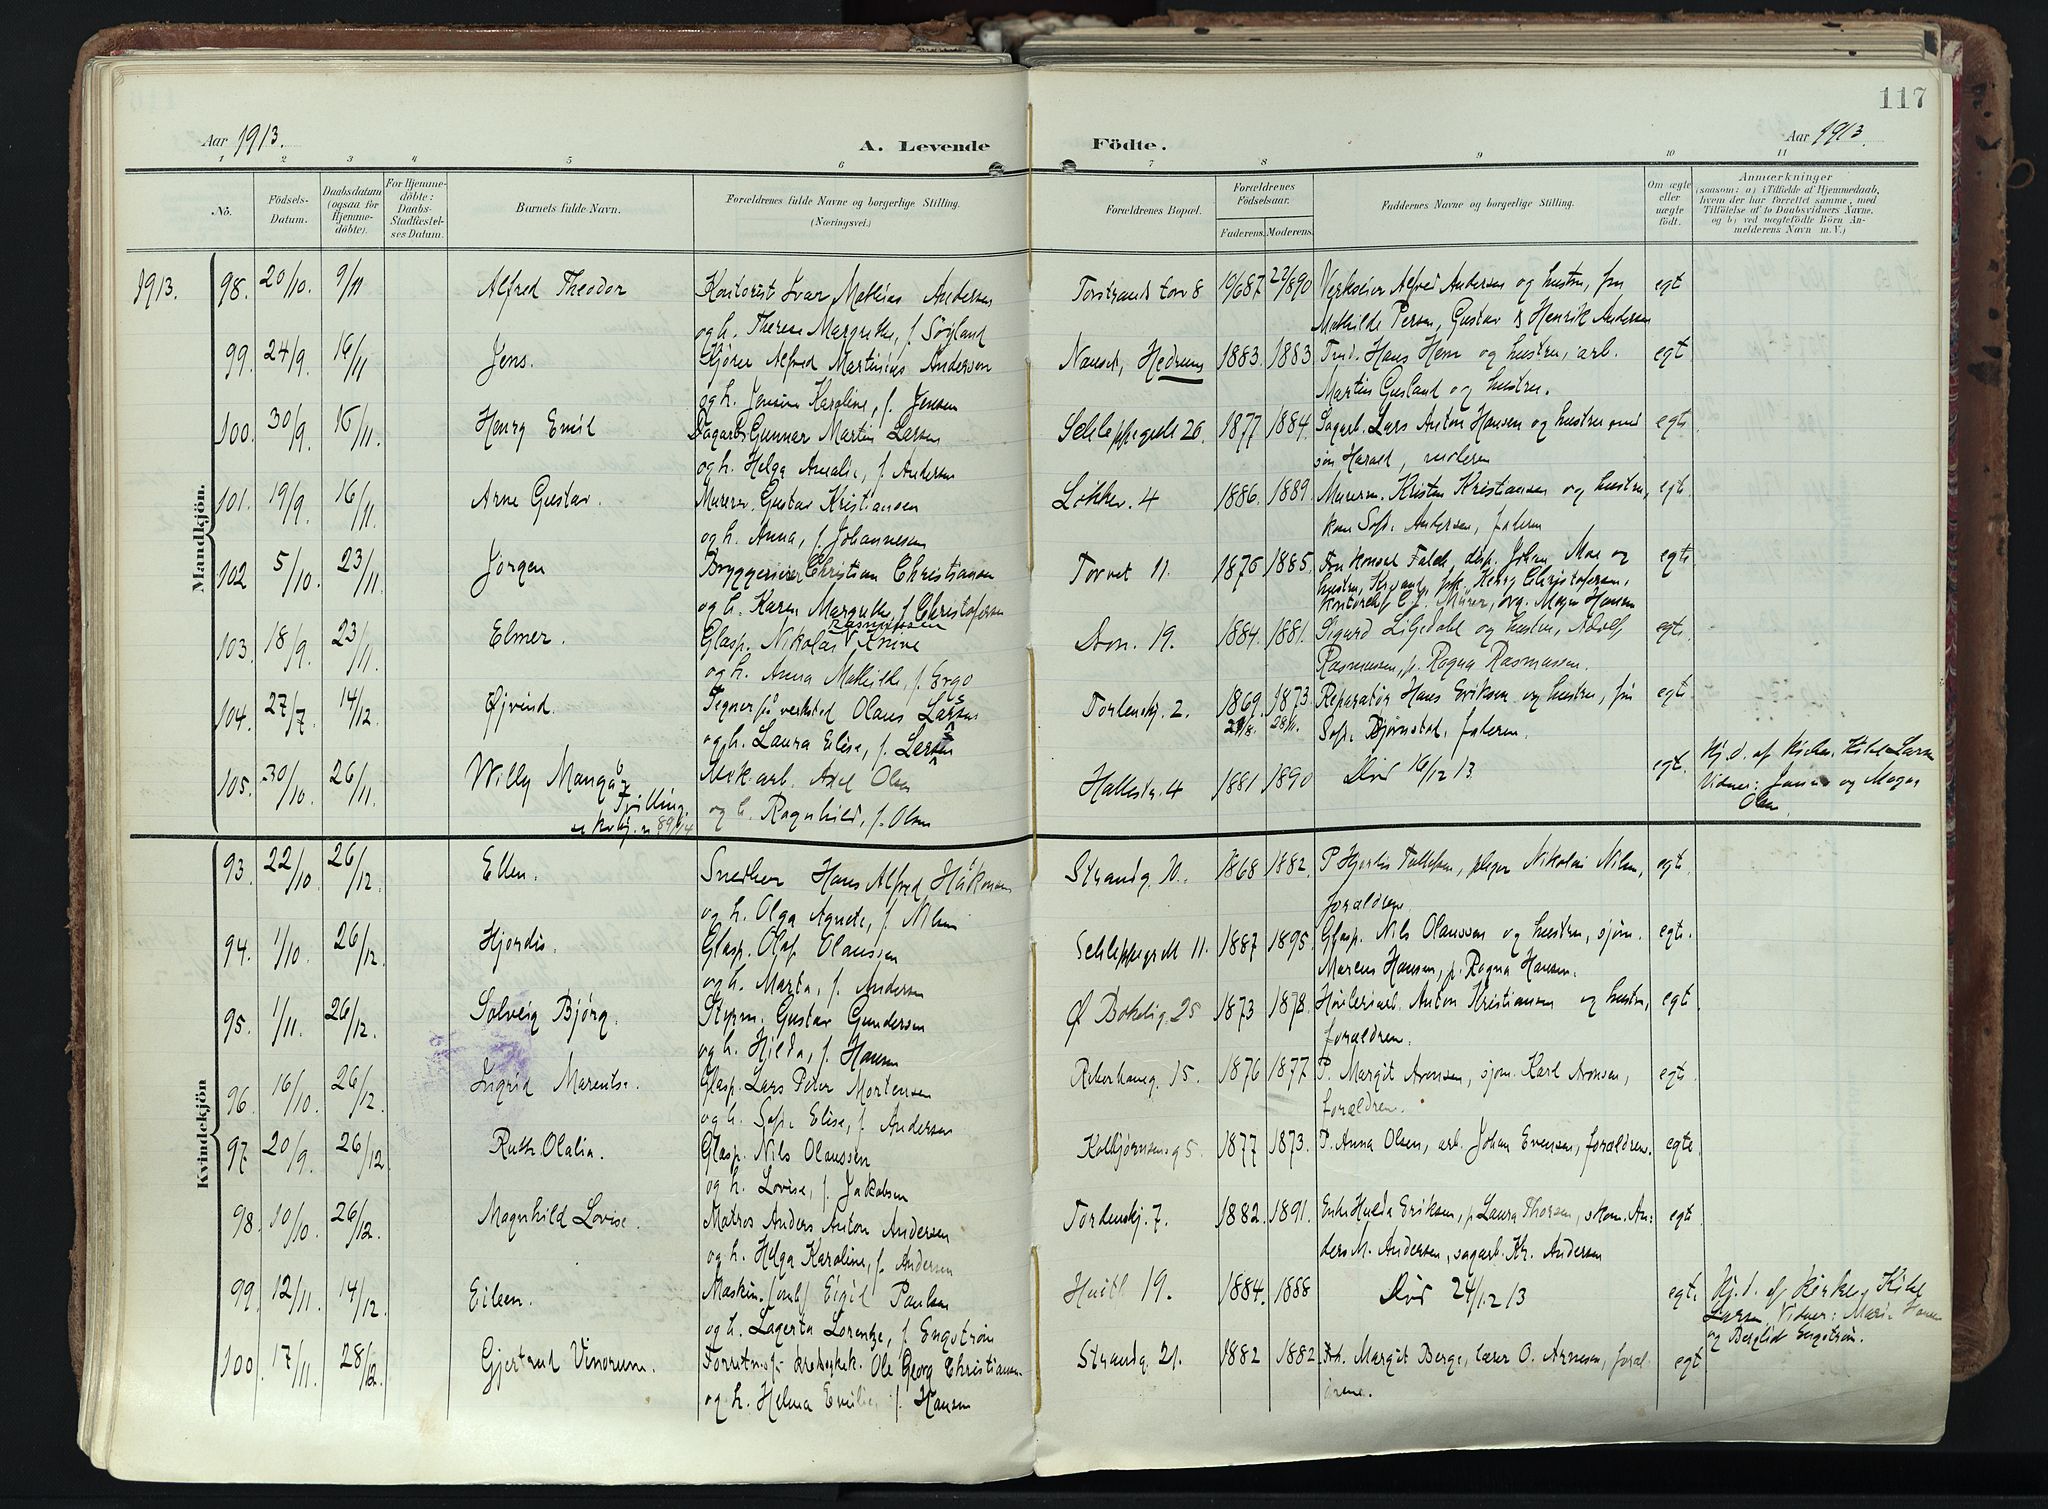 117
Aar 1913.
A. Levende
Födte.
Aar 1913.
1 2 3 4 5 6 7 8 9 10 11
No.
Födsels-
Datum.
Daabsdatum
(ogsaa for
Hjemme-
döbte).
For Hjemme-
döbte:
Daabs-
Stadfæstel-
ses Datum.
Barnets fulde Navn.
Forældrenes fulde Navne og borgerlige Stilling.
(Næringsvei.)
Forældrenes Bopæl.
Forældrenes
Födselsaar.
Faderens. Moderens.
Faddernes Navne og borgerlige Stilling.
Om ægte
eller
uægte
födt.
Anmærkninger
(saasom: a) i Tilfælde af Hjemmedaab,
hvem der har forrettet samme, med
Tilföielse af to Daabsvidners Navne,
og b) ved uægtefödte Börn An-
melderens Navn m.V.)
Mandkjön.
1913. 98. 20/10. 9/11 Alfred Theodor Kontorist Ivar Mathias Andersen Torstrands torv 8 1890 Alfred Andersen og hustru, fru egt
og h. Therese Margrethe, f. Søyland Mathilde Persen, Gustav & Henrik Andersen
99. 24/9. 16/11 Jens. Kjører Alfred Martinius Andersen Nanset, Hedrum 1883. 1883 Hans Hem og hustru, arb. egt
og h. Jensine Karoline, f. Jensen Martin Gusland og hustru.
100. 30/9. 16/11. Henry Emil Dagarb. Gunnar Martin Larsen Schleppegrells 26. 1877 1884. Sagarb. Lars Anton Hansen og hustru med egt.
og h. Helga Amalie, f. Andersen søn Harald, moderen
101. 19/9. 16/11. Arne Gustav. Murer Gustav Kristiansen Løkkev. 4 1886. 1889. Murerm. Kristen Kristiansen og hustru, egt.
og h. Anna, f. Johannesen Sofie Andersen, faderen
102 5/10. 23/11. Jørgen Bryggerieier Christian Christiansen Torvet 11. 1876 1885. Johan Moe og egt.
og h. Karen Margrethe, f. Christofersen Henry Christofersen,
103. 18/9. 23/11. Elmer. Glasp. Nikolai Rasmussen Knive Dron. 19. 1884. 1881. Sigurd Liljedahl og hustru, Adolf egt.
og h. Anna Mathilde, f. Ergo Rasmussen, p. Ragna Rasmussen.
104. 27/7. 14/12. Øjvind. Tegner på verksted Olaus Larsen Tordenskj. 2. 1869. 1873 Reparatør Hans Eriksen og hustru, frk egt
og h. Laura Elise, f. Larsen Sofie Bjørnstad, faderen.
105. 30/10. 26/11. Willy Mangor Mek. arb. Axel Olsen Hallestr. 4 1881 1890 Død 16/12 13 egt. Hj. d. af
Tvilling og h. Ragnhild, f. Olsen Vidner:
Olsen
Kvindekjön
93. 22/10 26/12. Ellen. Snedker Hans Alfred Håkonsen Strandg. 10. 1868 1882. P Hjordis Tollefsen, Nikolai Nilsen, egt.
og h. Olga Agnete, f. Nilsen forældrene
94. 1/10. 26/12. Hjordis. Glasp. Olaf Olaussen Schleppegrell 11. 1887 1895. Glasp. Nils Olaussen og hustru, sjøm. egt.
og h. Marta, f. Andersen Marcus Hansen, p. Ragna Hansen.
95. 1/11. 26/12. Solveig Bjørg. Styrm. Gustav Gundersen Ø Bøkelig. 25 1873 1878. Høvleriarb. Anton Kristiansen og hustru, egt.
og h. Hilda, f. Hansen forældrene.
96. 16/10. 26/12. Ingrid Marentse. Glasp. Lars Peter Mortensen 15. 1876 1877. P. Margit Aronsen, sjøm. Karl Aronsen, egt.
og h. Sofie Elise, f. Andersen forældren.
97 20/9. 26/12 Ruth Olalia. Glasp. Nils Olaussen Kolbjørnsens g 5. 1877 1873. P. Anna Olsen, arb. Johan Evensen, forældrene. egt.
og h. Lovise, f. Jakobsen
98. 10/10. 26/12. Magnhild Lovise. Matros Anders Anton Andersen Tordenskj. 7. 1882. 1891. Enke Hulda Eriksen, p Laura Thorsen, skom. An- egt.
og h. Helga Karoline, f. Andersen ders M. Andersen, sagarb. Kr. Andersen
99. 12/11. 14/12. Eileen. Maskin. Eigil Paulsen 19. 1884. 1888 Død 24/12 13 egt. Hj. d. af Kirkev. Kihl
og h. Lagerta Lorentze, f. Engstrøm Larsen, Vidner:
og Bergliot Engstrøm.
100. 17/11. 28/12. Gjertrud Vinorum. Ole Georg Christiansen Strandg. 21. 1882 1882 Frk. Margit Berge, lærer O. Arnesen, foræl- egt.
og h. Helma Emilie f. Hansen drene.